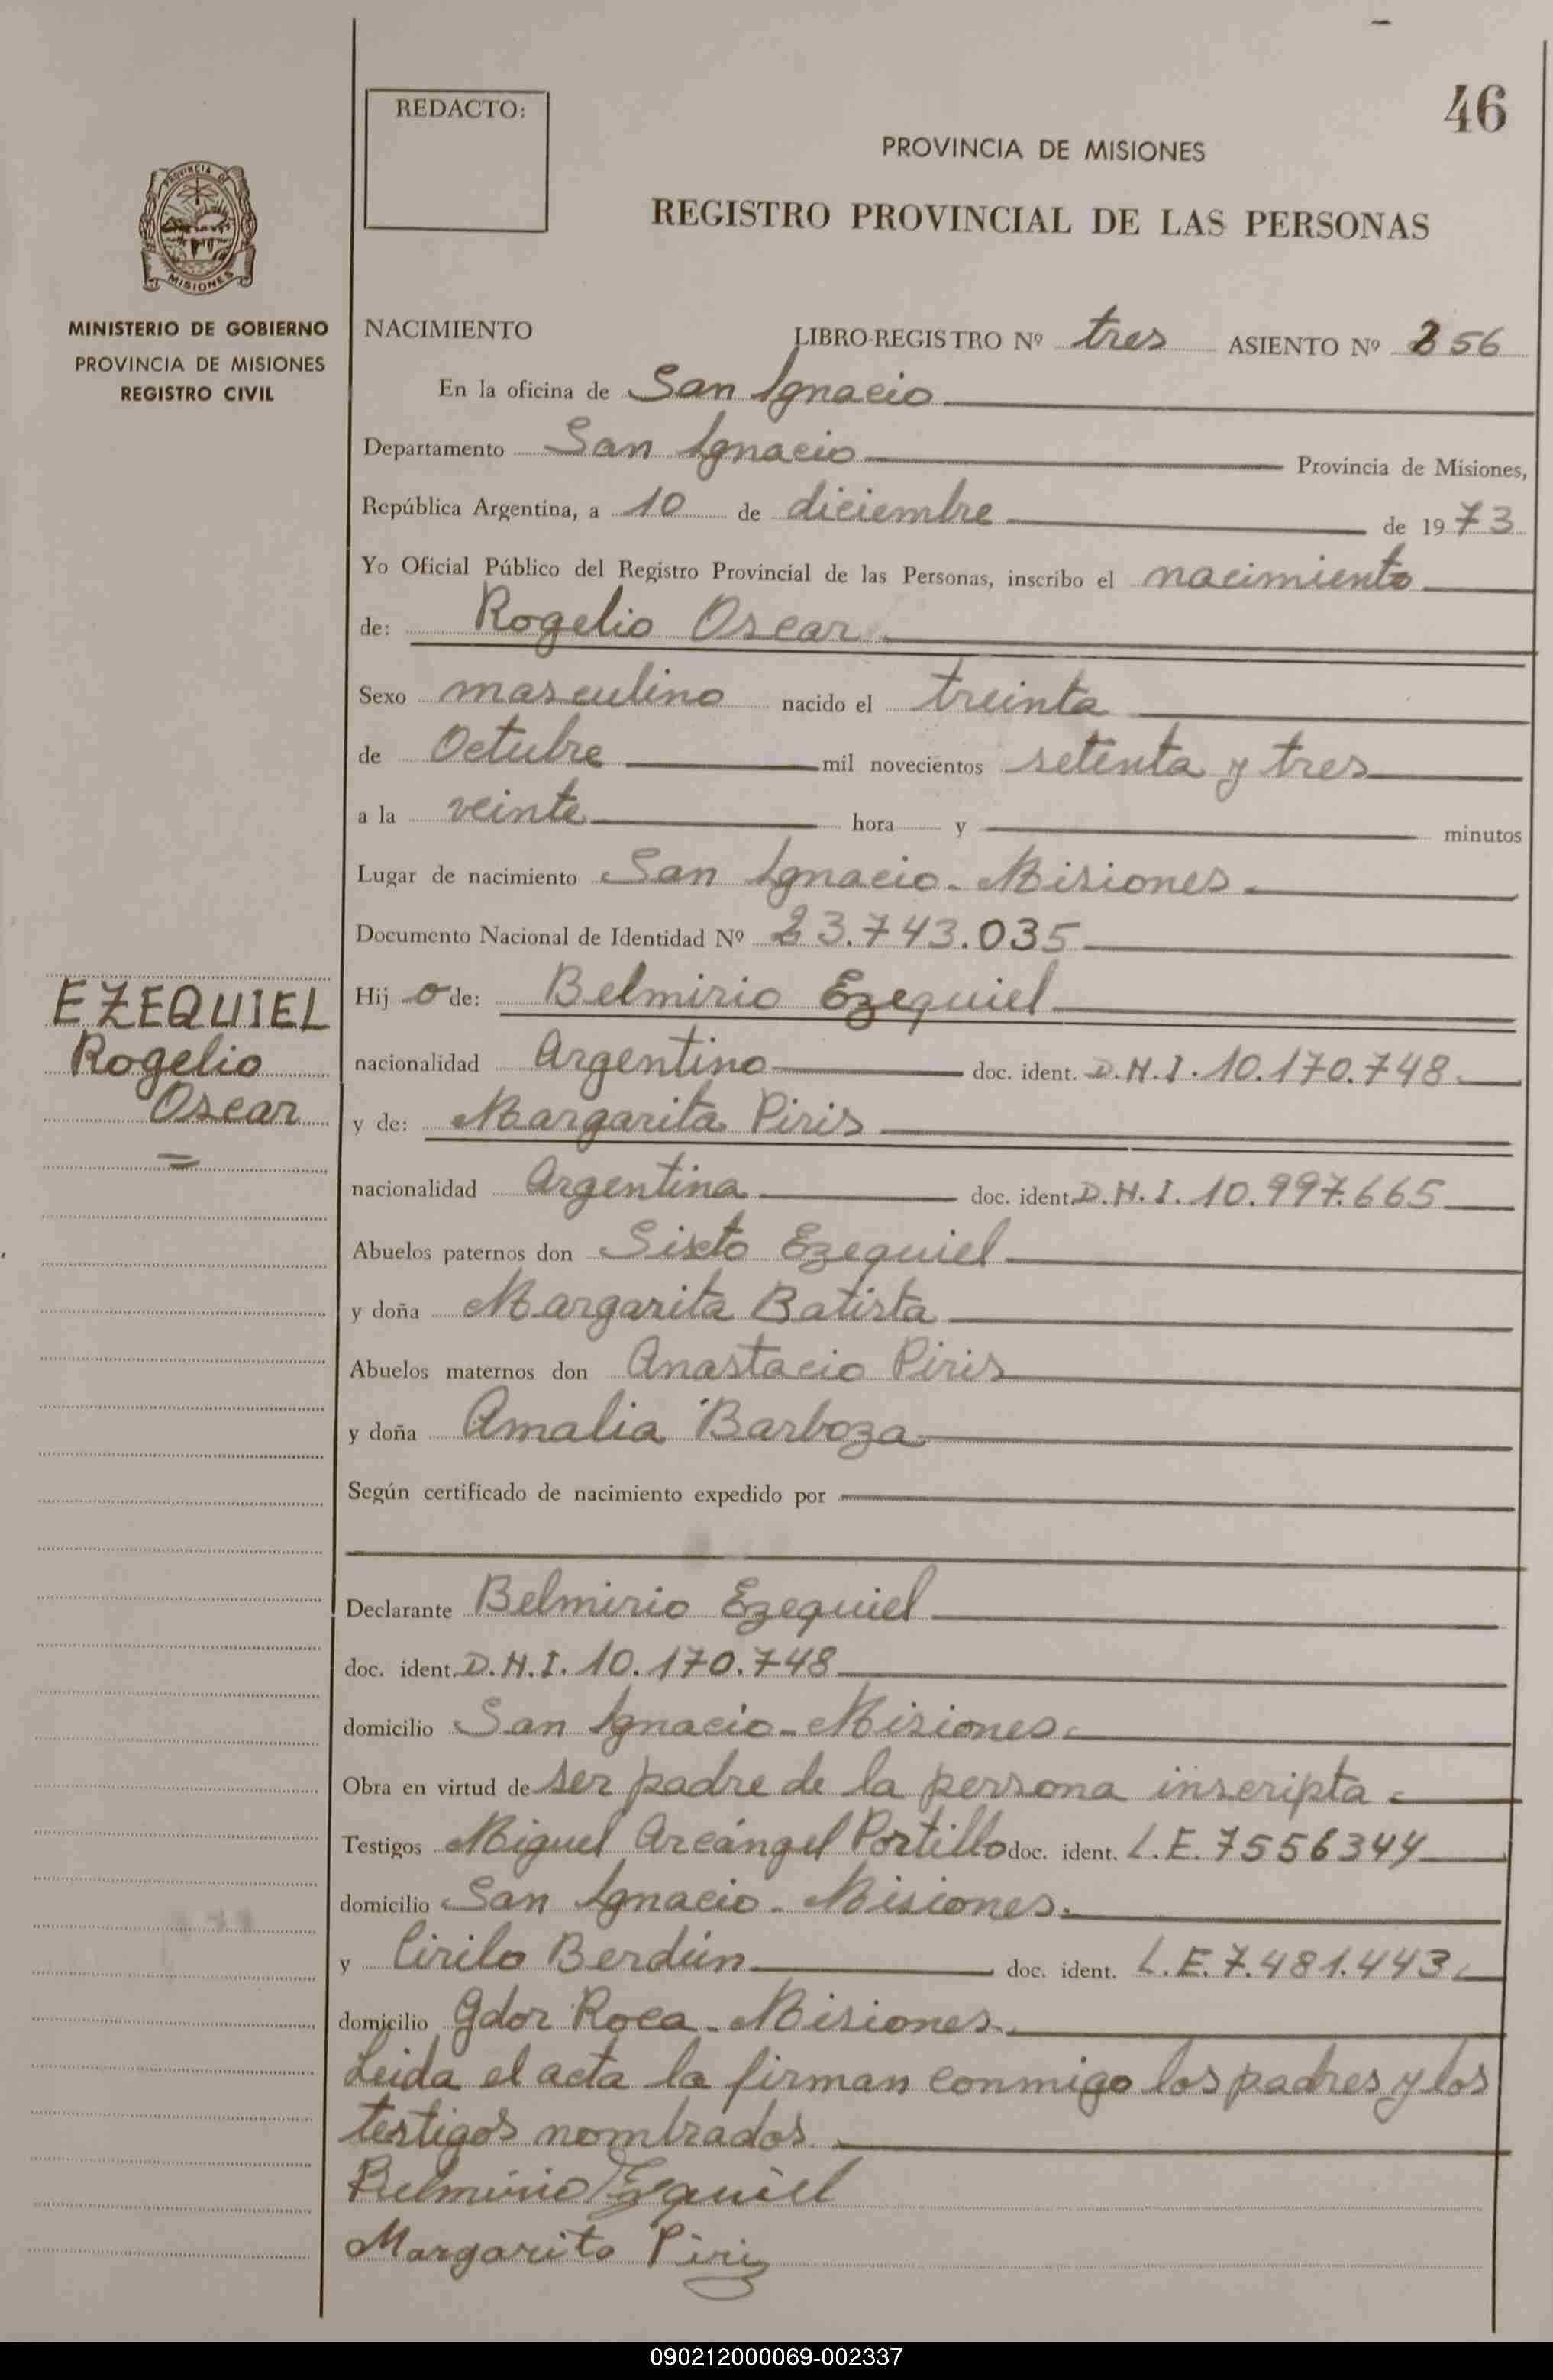 46
REDACTO:
PROVINCIA DE MISIONES
REGISTRO PROVINCIAL DE LAS PERSONAS
PROVINCIA DE
MISIONES
MINISTERIO DE GOBIERNO
PROVINCIA DE MISIONES
REGISTRO CIVIL
NACIMIENTO LIBRO-REGISTRO Nº tres ASIENTO Nº 256
En la oficina de San Ignacio
Departamento San Ignacio Provincia de Misiones,
República Argentina, a 10 de diciembre de 1973
Yo Oficial Público del Registro Provincial de las Personas, inscribo el nacimiento
de: Rogelio Oscar
Sexo masculino nacido el treinta
de Octubre mil novecientos setenta y tres
a la veinte hora y minutos
Lugar de nacimiento San Ignacio - Misiones
Documento Nacional de Identidad Nº 23.743.035
EZEQUIEL
Rogelio
Oscar
Hijo de: Belmirio Ezequiel
nacionalidad Argentino doc. ident. D.N.I. 10.170.748
y de: Margarita Piris
nacionalidad Argentina doc. ident. D.N.I. 10.997.665
Abuelos paternos don Sixto Ezequiel
y doña Margarita Batista
Abuelos maternos don Anastacio Piris
y doña Amalia Barboza
Según certificado de nacimiento expedido por
Declarante Belmirio Ezequiel
doc. ident. D.N.I. 10.170.748
domicilio San Ignacio - Misiones.
Obra en virtud de ser padre de la persona inscripta.
Testigos Miguel Arcángel Portillo doc. ident. L.E. 7556344
domicilio San Ignacio - Misiones.
y Cirilo Berdún doc. ident. L.E. 7.481.443
domicilio Gdor Roca - Misiones.
Leida el acta la firman conmigo los padres y los
testigos nombrados
Belmirio Ezequiel
Margarita Piriz
090212000069-002337